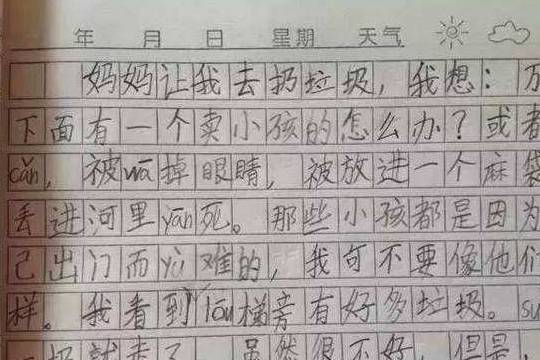 年 月 日 星期 天气
妈妈让我去扔垃圾，我想：万
下面有一个卖小孩的怎么办？或者
cǎn，被wā掉眼睛，被放进一个麻袋
丢进河里yān死。那些小孩都是因为
己出门而yù难的，我可不要像他们
样。我看到lōu梯旁有好多垃圾。su
扔就来了 虽然很不好，但是，